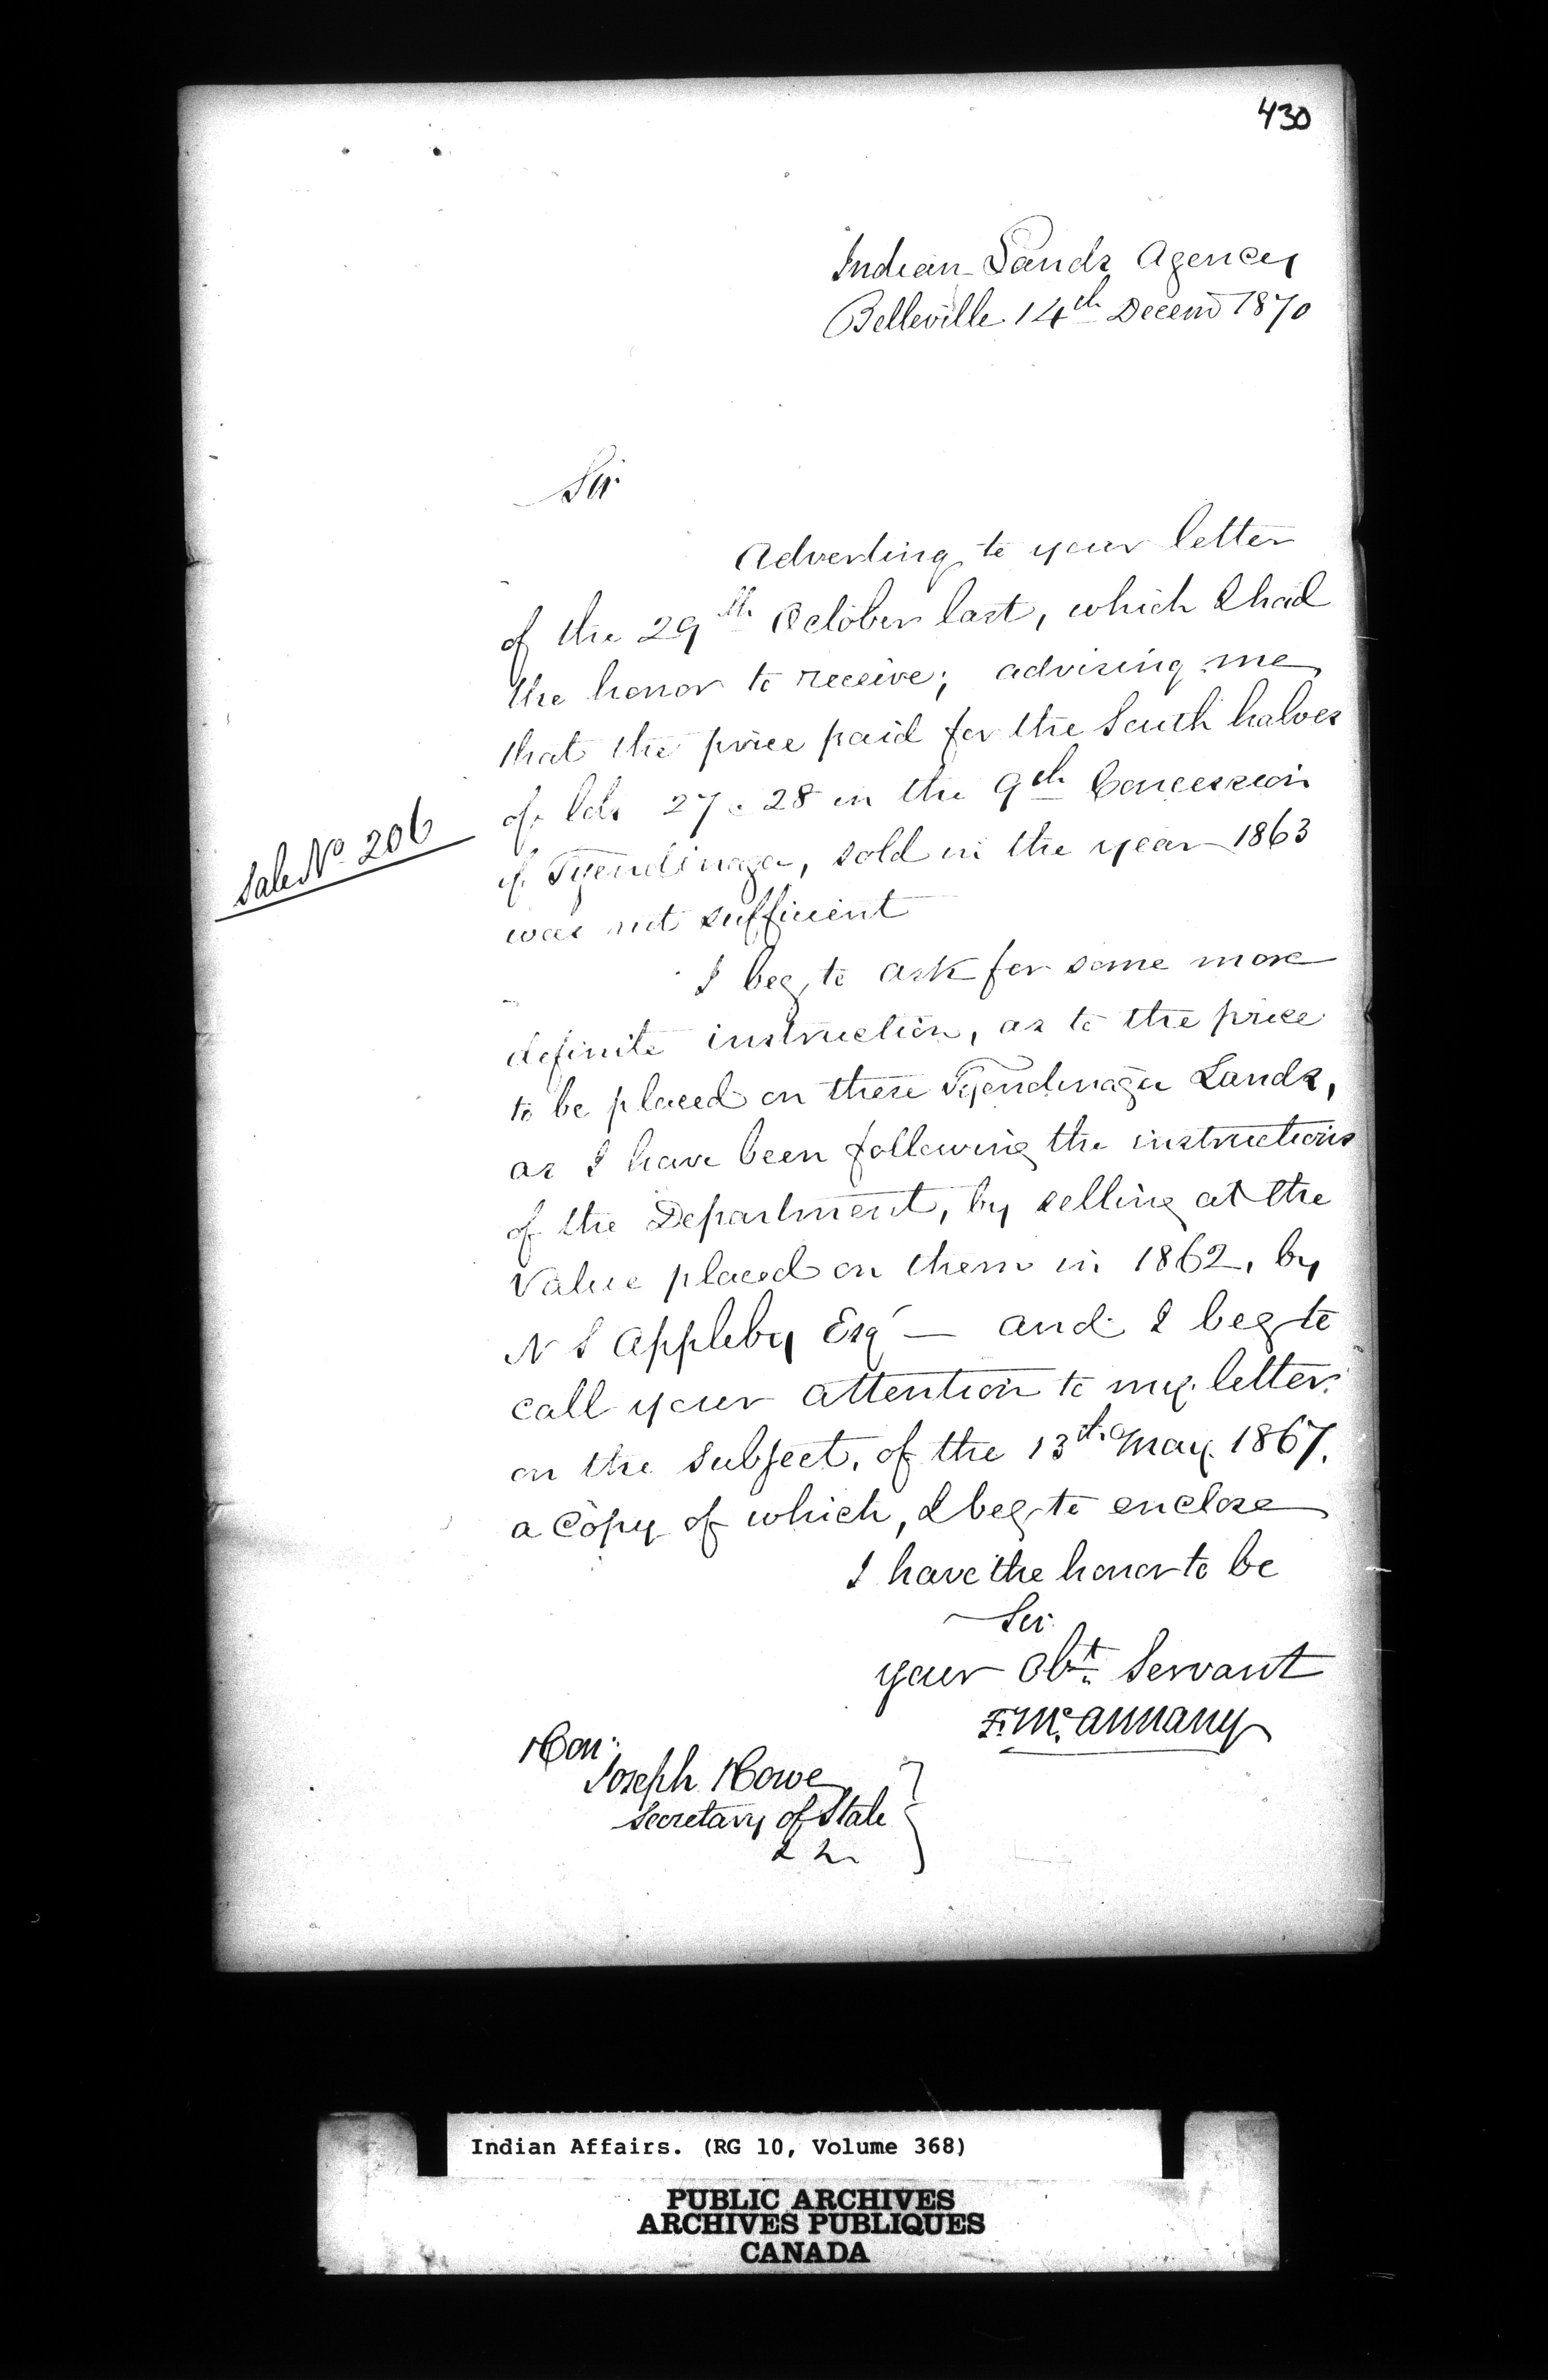 430
Indian Lands Agency
Belleville 14th Decem 1870
Sir
Adverting to your letter
of the 29th October last, which I had
the honor to receive; advising me
that the price paid for the South halves
of lots 27 & 28 in the 9th Concession
Sale No 206
of Tyendinaga, sold in the year 1863
was not sufficient
I beg to ask for some more
definite instruction, as to the price
to be placed on these Tyendinaga Lands,
as I have been following the instructions
of the Department, by selling at the
Value placed on them in 1862, by
N S Appleby Esq — and I beg to
call your attention to my letter
on the subject, of the 13th May 1867,
a Copy of which, I beg to enclose
I have the honor to be
Sir
your Obt Servant
F. Mc.annany
Hon:
Joseph Howe
Secretary of State
Indian Affairs. (RG 10, Volume 368)
PUBLIC ARCHIVES
ARCHIVES PUBLIQUES
CANADA